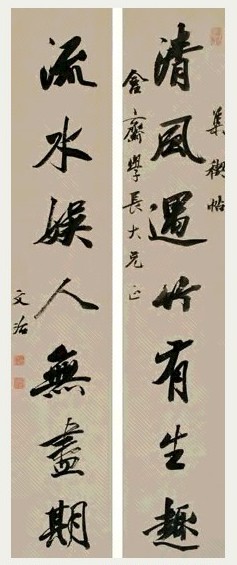 集禊帖
清風遇竹有生趣
含齋學長大兄正
流水娛人無盡期
文治